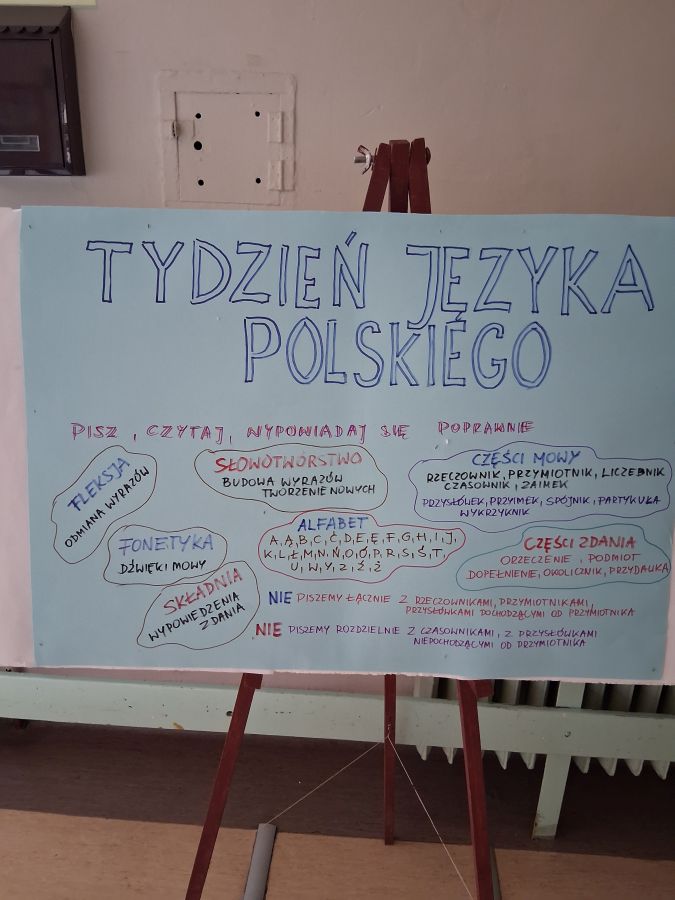 TYDZIEŃ JĘZYKA
POLSKIEGO
PISZ, CZYTAJ, WYPOWIADAJ SIĘ POPRAWNIE
FLEKSJA
ODMIANA WYRAZÓW
SŁOWOTWÓRSTWO
BUDOWA WYRAZÓW
TWORZENIE NOWYCH
CZĘŚCI MOWY
RZECZOWNIK, PRZYMIOTNIK, LICZEBNIK
CZASOWNIK, ZAIMEK
PRZYSŁÓWEK, PRZYIMEK, SPÓJNIK, PARTYKUŁA
WYKRZYKNIK
FONETYKA
DŹWIĘKI MOWY
ALFABET
A, Ą, B, C, Ć, D, E, Ę, F, G, H, I, J,
K, L, Ł, M, N, Ń, O, Ó, P, R, S, Ś, T,
U, W, Y, Z, Ź, Ż
CZĘŚCI ZDANIA
ORZECZENIE, PODMIOT
DOPEŁNIENIE, OKOLICZNIK, PRZYDAWKA
SKŁADNIA
WYPOWIEDZENIA
ZDANIA
NIE PISZEMY ŁĄCZNIE Z RZECZOWNIKAMI, PRZYMIOTNIKAMI,
PRZYSŁÓWKAMI POCHODZĄCYMI OD PRZYMIOTNIKA
NIE PISZEMY ROZDZIELNIE Z CZASOWNIKAMI, Z PRZYSŁÓWKAMI
NIEPOCHODZĄCYMI OD PRZYMIOTNIKA